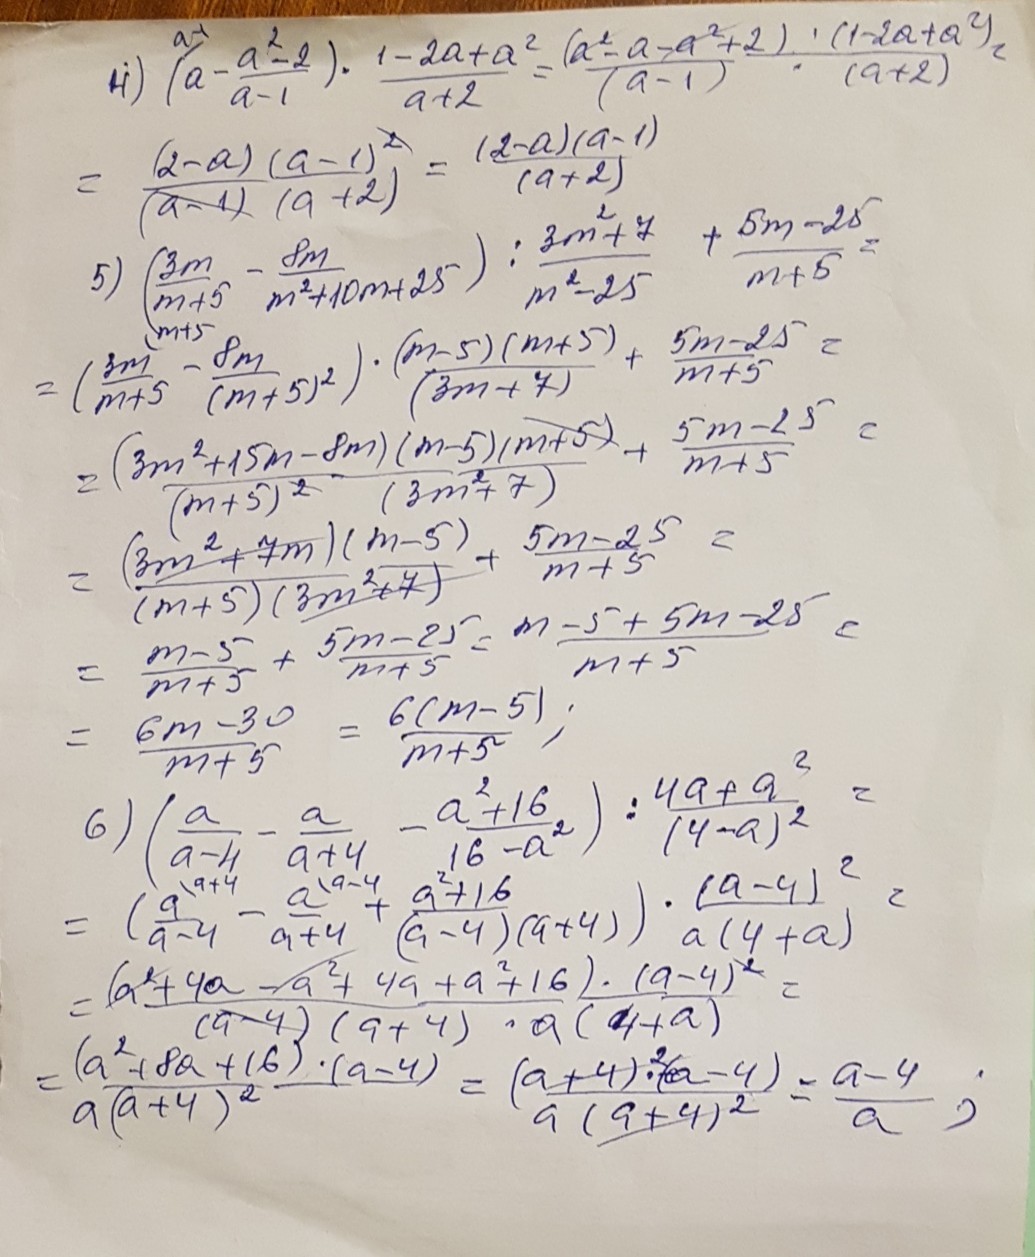 4) (a - (a²-2)/(a-1)) · (1-2a+a²)/(a+2) = (a²-a-a²+2)·(1-2a+a²)/(a-1)·(a+2) =
= (2-a)(a-1)²/(a-1)(a+2) = (2-a)(a-1)/(a+2)
5) (3m/(m+5) - 8m/(m²+10m+25)) : (3m²+7)/(m²-25) + (5m-25)/(m+5) =
= (3m/(m+5) \m+5 - 8m/(m+5)²) · (m-5)(m+5)/(3m+7) + (5m-25)/(m+5) =
= (3m²+15m-8m)(m-5)(m+5)/(m+5)²(3m²+7) + (5m-25)/(m+5) =
= (3m²+7m)(m-5)/(m+5)(3m²+7) + (5m-25)/(m+5) =
= (m-5)/(m+5) + (5m-25)/(m+5) = (m-5+5m-25)/(m+5) =
= (6m-30)/(m+5) = 6(m-5)/(m+5);
6) (a/(a-4) - a/(a+4) - (a²+16)/(16-a²)) : (4a+a²)/(4-a)² =
= (a\a+4/(a-4) - a\a-4/(a+4) + (a²+16)/(a-4)(a+4)) · (a-4)²/a(4+a) =
= (a²+4a-a²+4a+a²+16)·(a-4)²/(a-4)(a+4)·a(4+a) =
= (a²+8a+16)·(a-4)/a(a+4)² = (a+4)²·(a-4)/a(a+4)² = (a-4)/a;